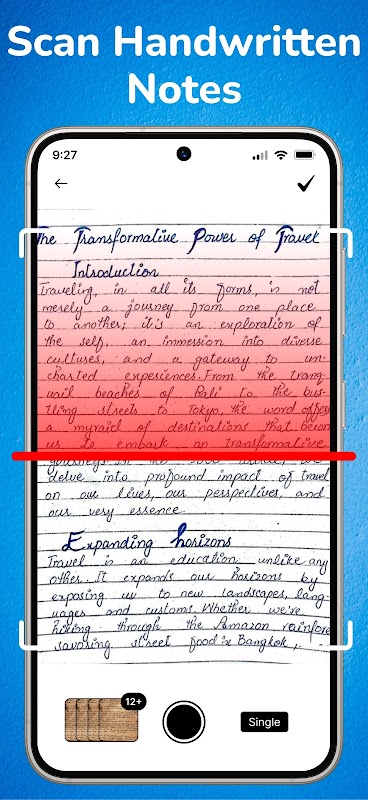 Scan Handwritten
Notes
9:27
The Transformative Power of Travel
Introduction
Traveling, in all its forms, is not
merely a journey from one place
to another; it's an exploration of
the self, an immersion into diverse
cultures, and a gateway to un-
charted experiences. From the tranq-
uail beaches of Bali to the bus-
tling streets to Tokyo, the word offer
a myraid of destinations that becon
us to embark on transformative
delve into profound impact of travel
on our lives, our perspectives, and
our very essence.
Expanding horizons
Travel is an education unlike any
other. It expands our horizons by
exposing us to new landscapes, lang-
uages and customs. Whether we're
hiking through the Amazon rainfore
savoring street food in Bangkok,
12+
Single